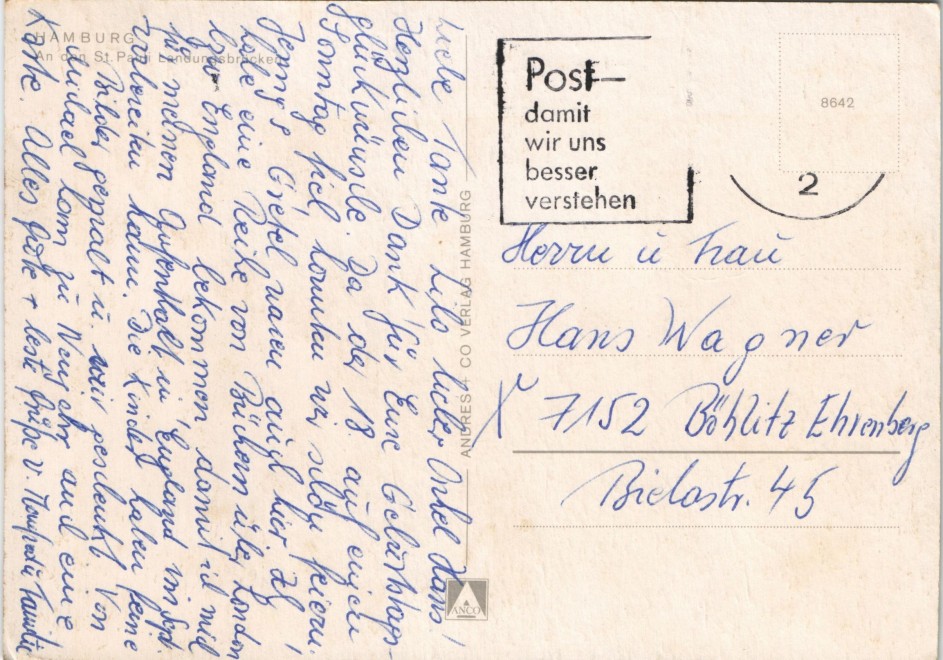 HAMBURG
An den St. Pauli Landungsbrücken
Liebe Tante Lilo, lieber Onkel Hans!
Herzlichen Dank für Eure Geburtstags-
glückwünsche. Da der 18. auf einen
Sonntag fiel, konnten wir schön feiern.
Jenny & waren auch hier. Ich
habe eine Reihe von Büchern über London
bzw England bekommen, damit ich mich
für meinen Aufenthalt in England im
vorbereiten kann. Die Kinder haben feine
Bilder gemalt u. mir geschenkt. Von
Michael kam zu Neujahr auch eine
Karte. Alles Gute + beste Grüße v. Familie
ANDRES + CO VERLAG HAMBURG
ANCO
Post—
damit
wir uns
besser
verstehen
8642
2
Herrn u Frau
Hans Wagner
X 7152 Böhlitz Ehrenberg
Bielastr. 45